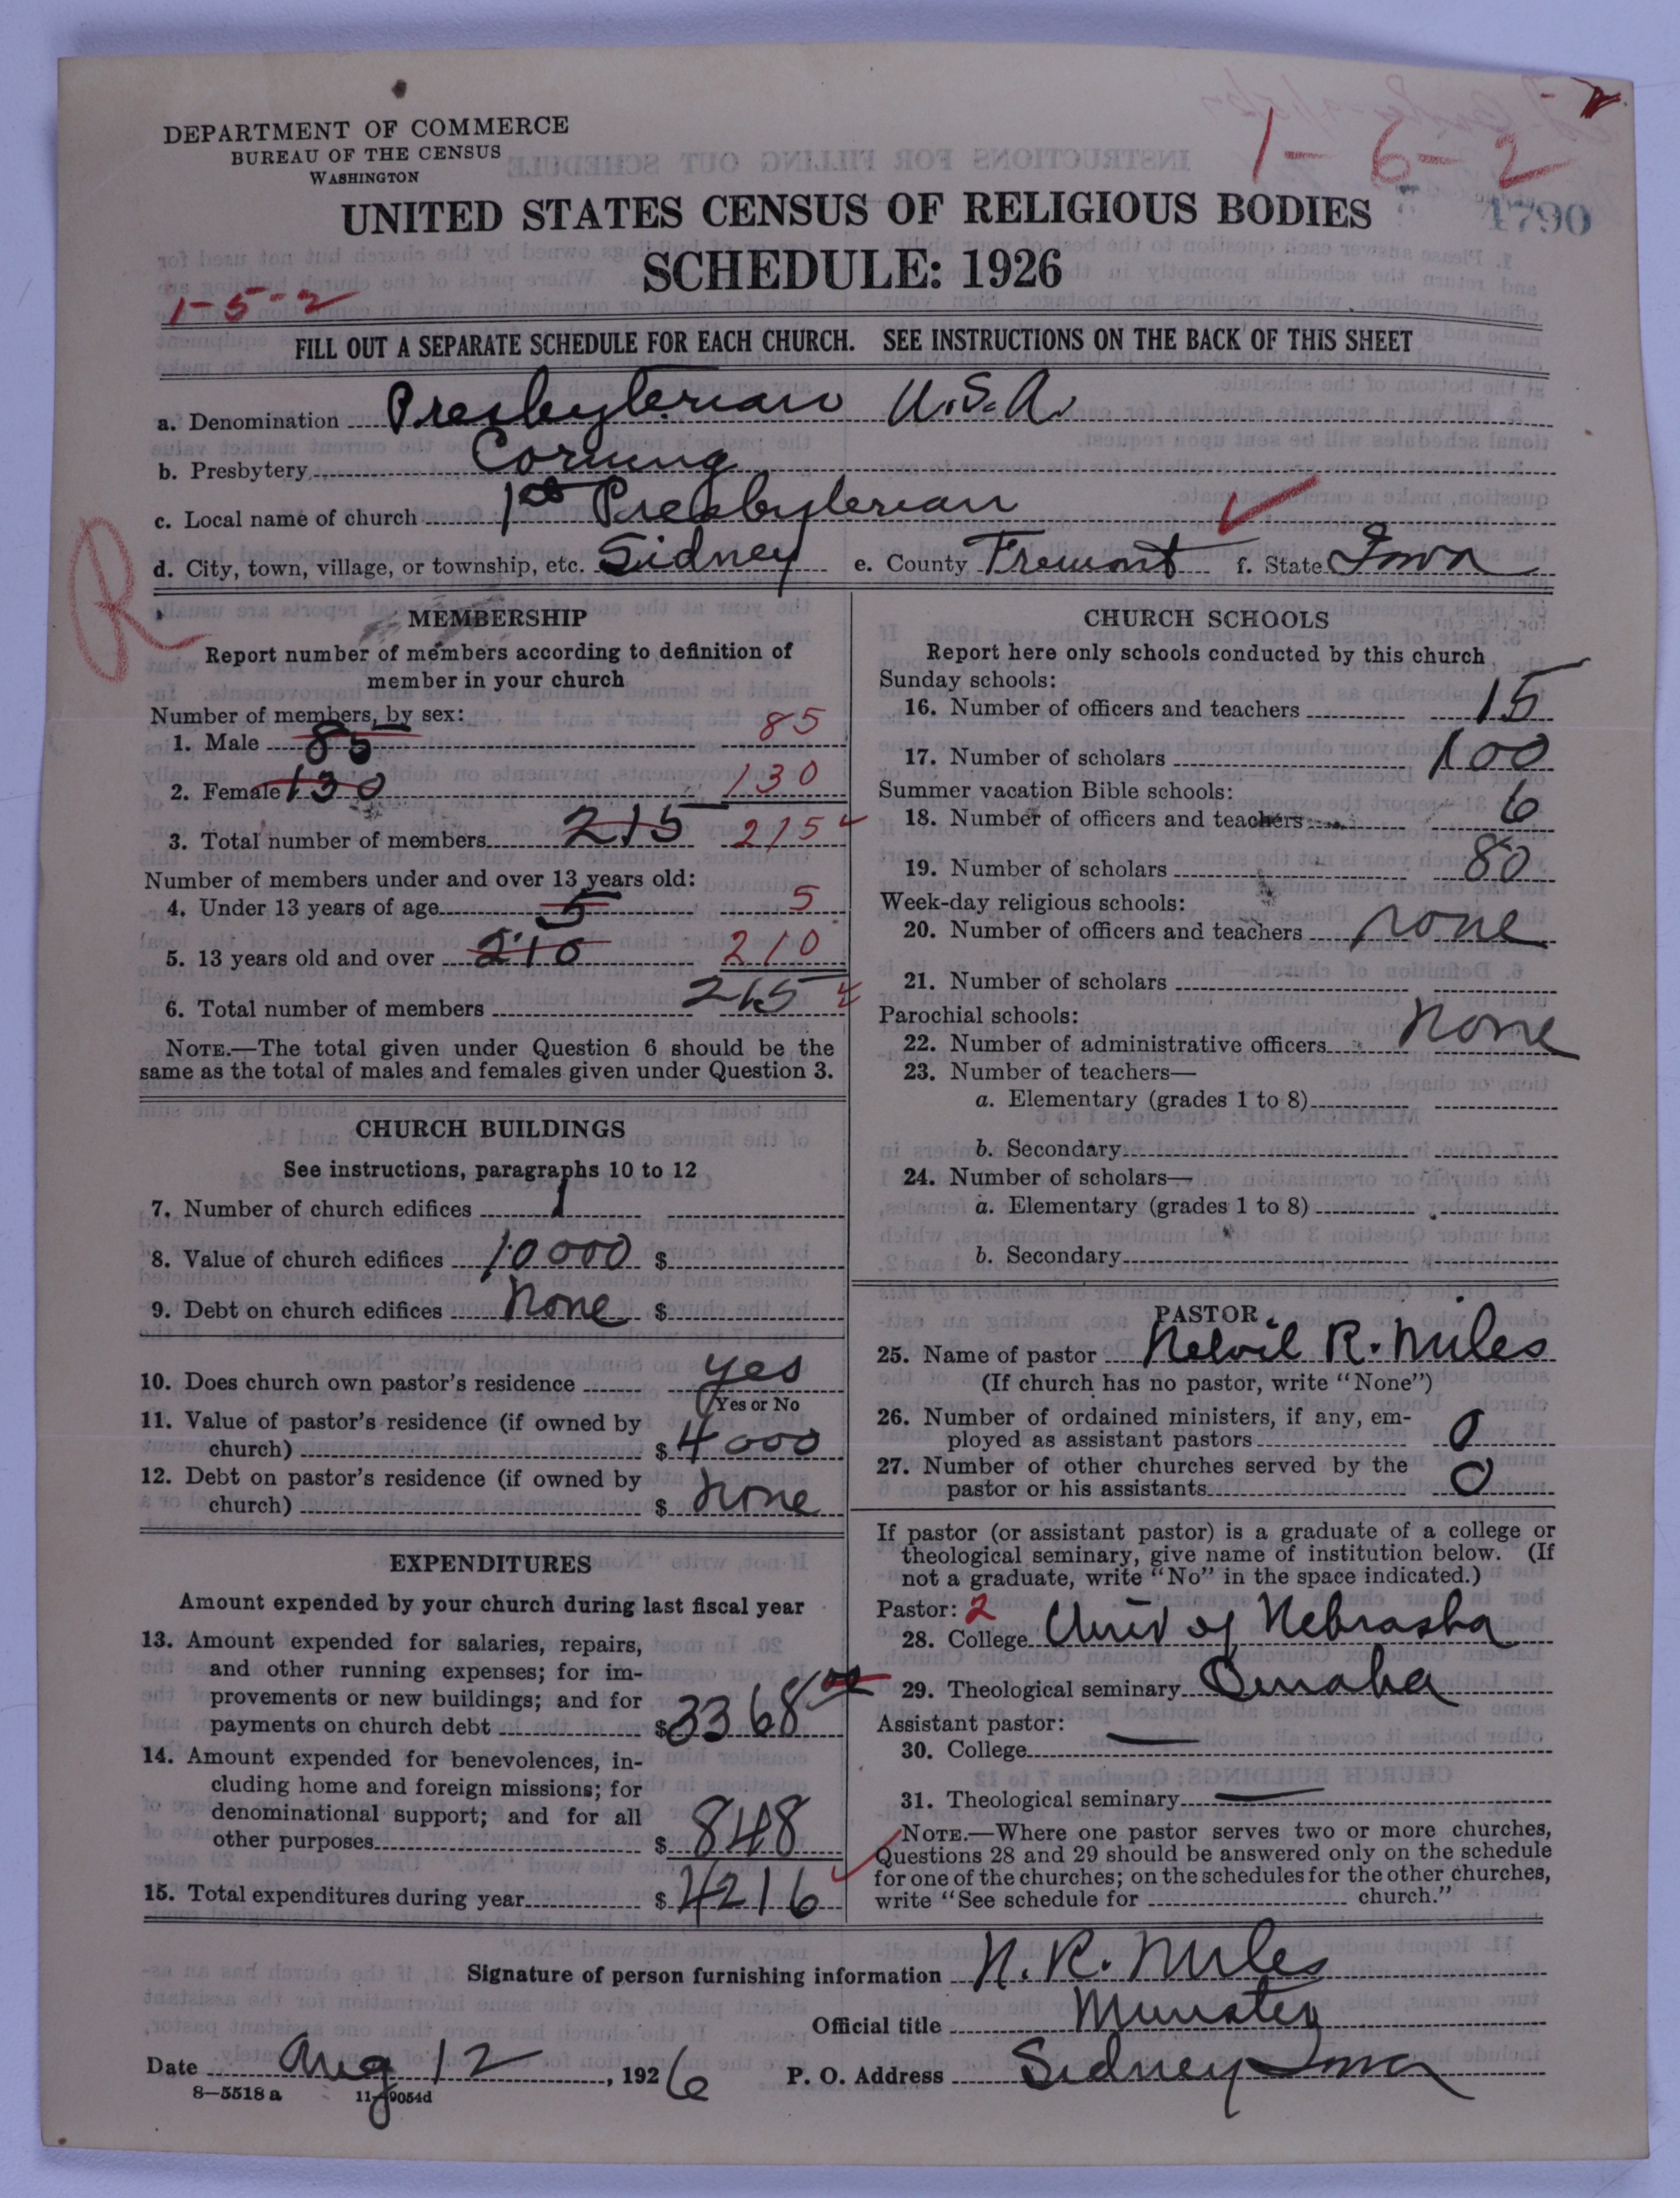 DEPARTMENT OF COMMERCE
BUREAU OF THE CENSUS
WASHINGTON
1-6-2
UNITED STATES CENSUS OF RELIGIOUS BODIES
1790
SCHEDULE: 1926
1-5-2
FILL OUT A SEPARATE SCHEDULE FOR EACH CHURCH. SEE INSTRUCTIONS ON THE BACK OF THIS SHEET
a. Denomination Presbyterian U.S.A.
b. Presbytery Corning
c. Local name of church 1st Presbyterian
d. City, town, village, or township, etc. Sidney e. County Fremont f. State Iowa
R
MEMBERSHIP
Report number of members according to definition of
member in your church
Number of members, by sex:
1. Male 85 85
2. Female 130 130
3. Total number of members 215 215
Number of members under and over 13 years old:
4. Under 13 years of age 5 5
5. 13 years old and over 210 210
6. Total number of members 215
NOTE.—The total given under Question 6 should be the
same as the total of males and females given under Question 3.
CHURCH BUILDINGS
See instructions, paragraphs 10 to 12
7. Number of church edifices 1
8. Value of church edifices 10000 $
9. Debt on church edifices None $
10. Does church own pastor's residence yes
(Yes or No
11. Value of pastor's residence (if owned by
church) $ 4000
12. Debt on pastor's residence (if owned by
church) $ None
EXPENDITURES
Amount expended by your church during last fiscal year
13. Amount expended for salaries, repairs,
and other running expenses; for im-
provements or new buildings; and for
payments on church debt $ 3368 00
14. Amount expended for benevolences, in-
cluding home and foreign missions; for
denominational support; and for all
other purposes $ 848
15. Total expenditures during year $ 4216
CHURCH SCHOOLS
Report here only schools conducted by this church
Sunday schools:
16. Number of officers and teachers 15
17. Number of scholars 100
Summer vacation Bible schools:
18. Number of officers and teachers 6
19. Number of scholars 80
Week-day religious schools:
20. Number of officers and teachers none
21. Number of scholars
Parochial schools:
22. Number of administrative officers None
23. Number of teachers—
a. Elementary (grades 1 to 8)
b. Secondary
24. Number of scholars—
a. Elementary (grades 1 to 8)
b. Secondary
PASTOR
25. Name of pastor Nelvil R. Miles
(If church has no pastor, write "None")
26. Number of ordained ministers, if any, em-
ployed as assistant pastors 0
27. Number of other churches served by the
pastor or his assistants 0
If pastor (or assistant pastor) is a graduate of a college or
theological seminary, give name of institution below. (If
not a graduate, write "No" in the space indicated.)
Pastor: 2
28. College Univ of Nebraska
29. Theological seminary Omaha
Assistant pastor:
30. College —
31. Theological seminary —
NOTE.—Where one pastor serves two or more churches,
Questions 28 and 29 should be answered only on the schedule
for one of the churches; on the schedules for the other churches,
write "See schedule for church."
Signature of person furnishing information N. R. Miles
Official title Minister
Date Aug 12, 1926 P. O. Address Sidney Iowa
8—5518 a 11—9054d